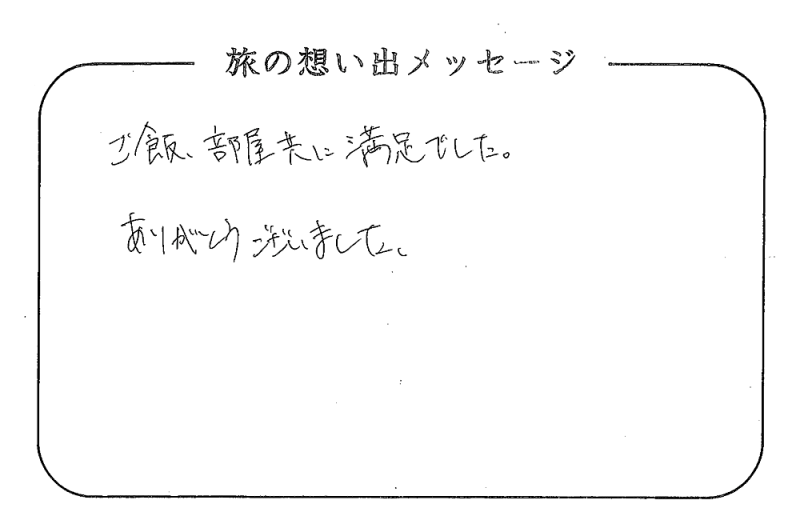 旅の想い出メッセージ
ご飯、部屋共に満足でした。
ありがとうございました。